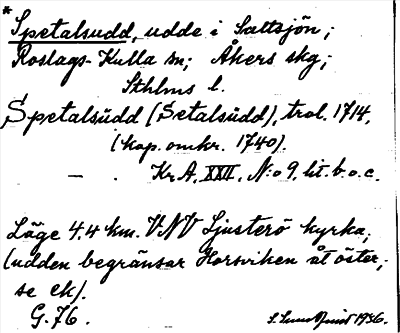 * Spetalsudd, udde i Saltsjön;
Roslags-Kulla sn; Åkers skg;
Sthlms l.
Spetalsudd (Setalsudd), trol. 1714,
(kop. omkr. 1740).
— . Kr.A. XXII. N:o 9. lit. b. o. c.
Läge 4.4 km. V.NV Ljusterö kyrka,
(udden begränsar Horsviken åt öster,
se ek).
G. 76.
1936.